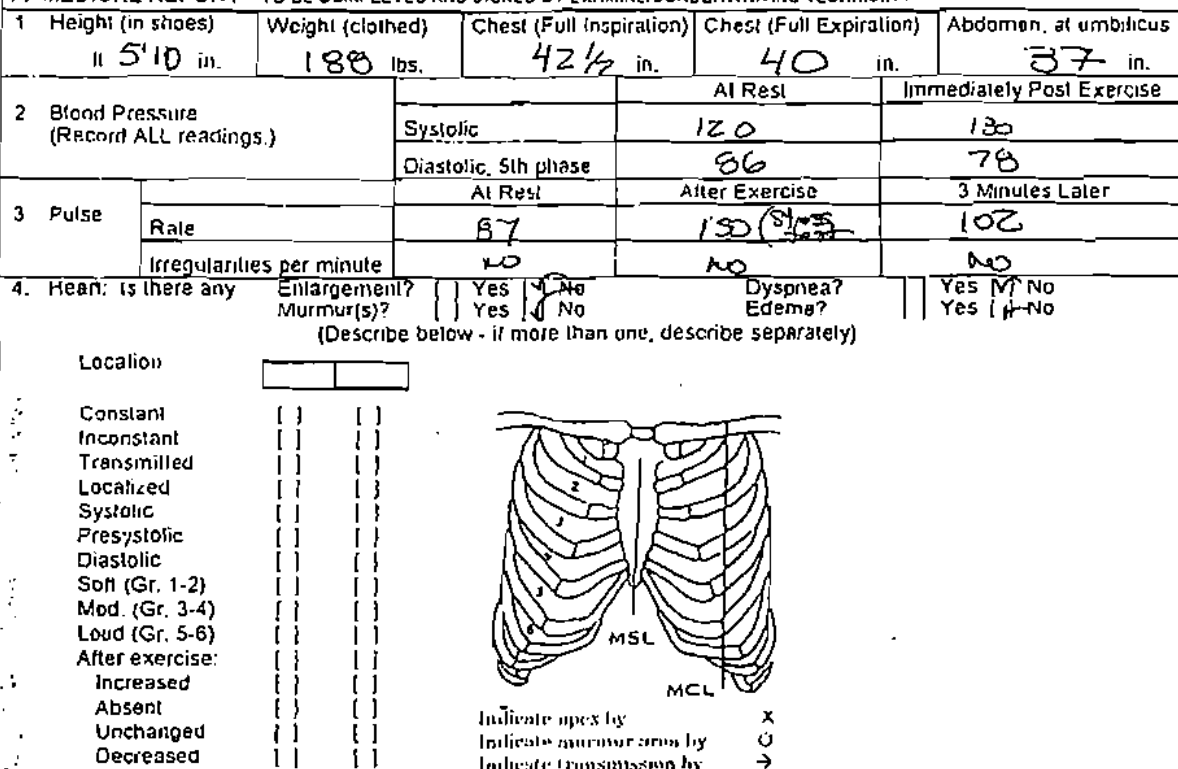 1 Height (in shoes) Weight (clothed) Chest (Full Inspiration) Chest (Full Expiration) Abdomen, at umbilicus
5'10 in. 188 lbs. 42 1/2 in. 40 in. 37 in.
At Rest Immediately Post Exercise
2 Blood Pressure
(Record ALL readings.)
Systolic 120 130
Diastolic, 5th phase 86 78
At Rest After Exercise 3 Minutes Later
3 Pulse
Rate 87 150 102
Irregularities per minute NO NO NO
4. Heart: Is there any Enlargement? [ ] Yes [✓] No Dyspnea? [ ] Yes [✓] No
Murmur(s)? [ ] Yes [✓] No Edema? [ ] Yes [✓] No
(Describe below - if more than one, describe separately)
Location
Constant [ ] [ ]
Inconstant [ ] [ ]
Transmitted [ ] [ ]
Localized [ ] [ ]
Systolic [ ] [ ]
Presystolic [ ] [ ]
Diastolic [ ] [ ]
Soft (Gr. 1-2) [ ] [ ]
Mod. (Gr. 3-4) [ ] [ ]
Loud (Gr. 5-6) [ ] [ ]
After exercise: [ ] [ ]
Increased [ ] [ ]
Absent [ ] [ ]
Unchanged [ ] [ ]
Decreased [ ] [ ]
2
6
MSL
MCL
Indicate apex by X
Indicate murmur area by O
Indicate transmission by →